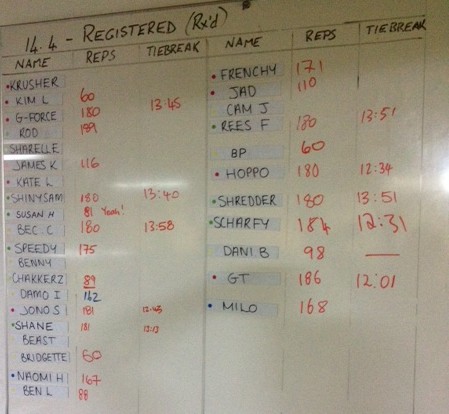 14.4 - REGISTERED (Rx'd)
NAME REPS TIEBREAK
KRUSHER
KIM L 60
G-FORCE 180 13:45
ROD 199
SHARELLE
JAMES K 116
KATE L
SHINYSAM 180 13:40
SUSAN H 81 Yeah!
BEC.C 180 13:58
SPEEDY 175
BENNY
CHAKKERZ 89
DAMO I 162
JONO S 181
SHANE 181 12:13
BEAST
BRIDGETTE 60
NAOMI H 167
BEN L 88
NAME REPS TIEBREAK
FRENCHY 171
JAD 110
CAM J
REES F 180 13:51
BP 60
HOPPO 180 12:34
SHREDDER 180 13:51
SCHARFY 184 12:31
DANI B 98 —
GT 186 12:01
MILO 168